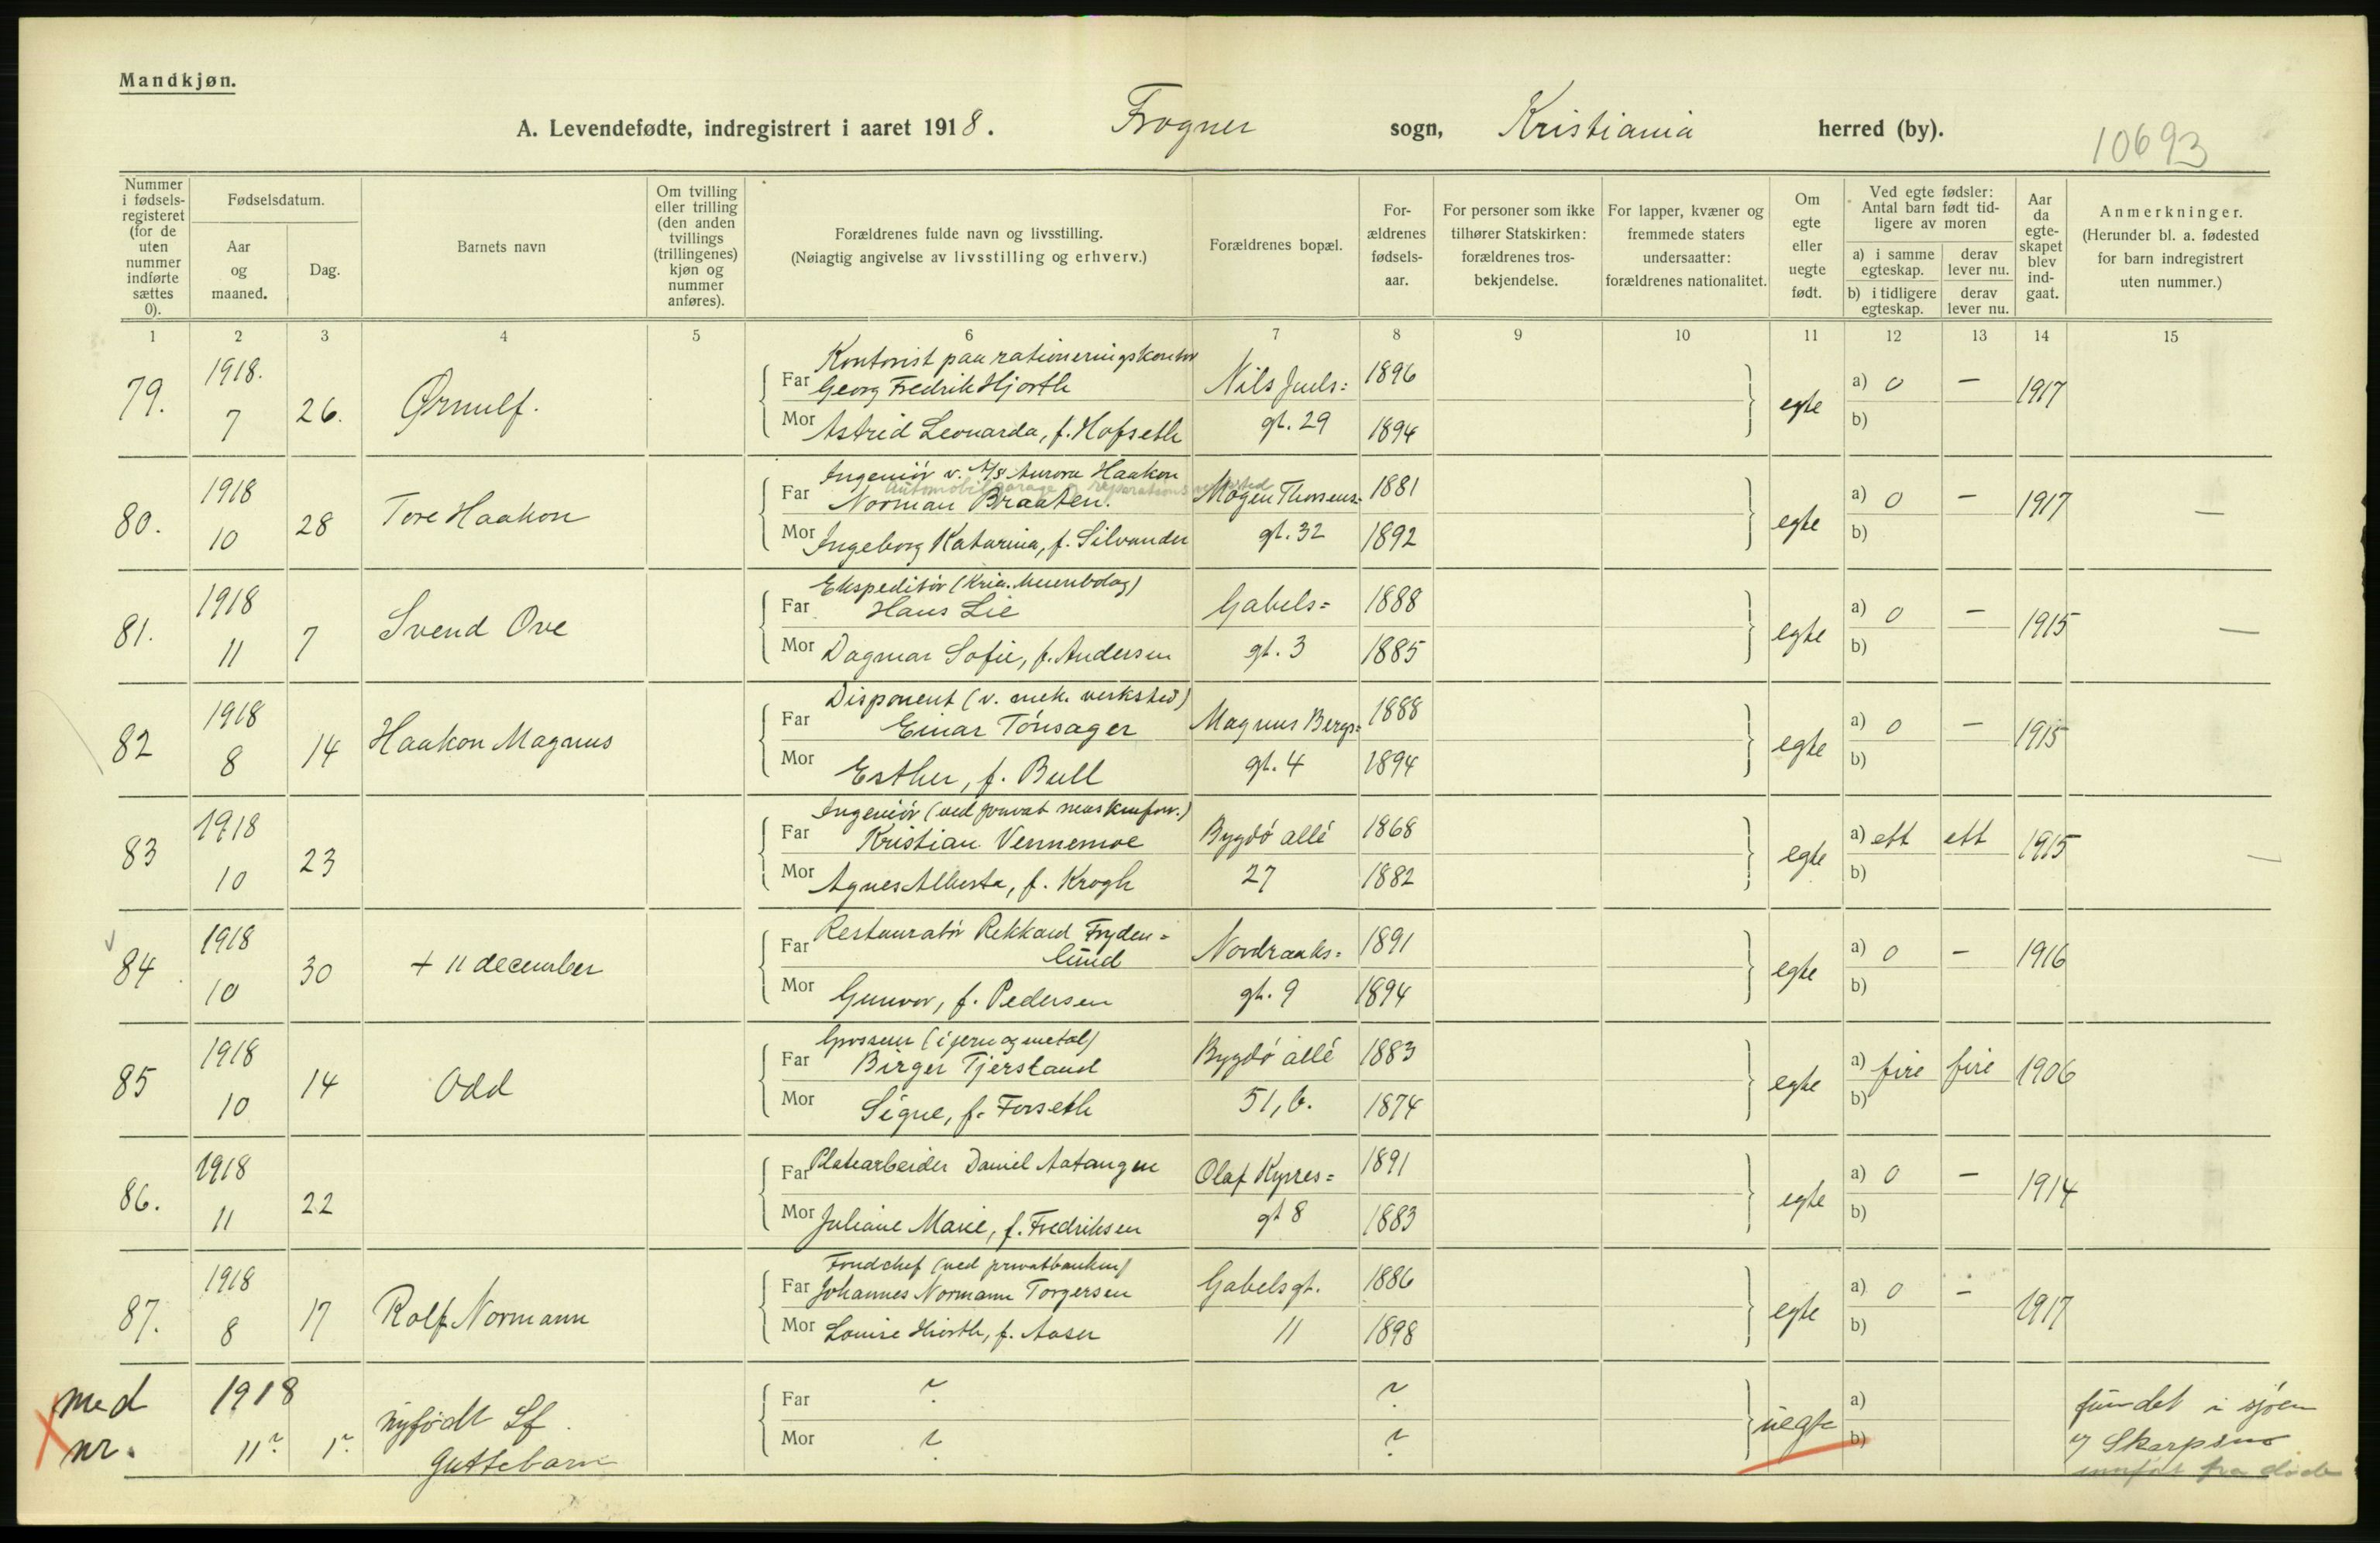 Mandkjøn.
A. Levendefødte, indregistrert i aaret 1918. Frogner sogn, Kristiania herred (by).
10693
Nummer i fødsels- registeret (for de uten nummer indførte sættes 0).
Fødselsdatum.
Aar og maaned.
Dag.
Barnets navn
Om tvilling eller trilling (den anden tvillings (trillingenes) kjøn og nummer anføres).
Forældrenes fulde navn og livsstilling.
(Nøiagtig angivelse av livsstilling og erhverv.)
Forældrenes bopæl.
For- ældrenes fødsels- aar.
For personer som ikke tilhører Statskirken: forældrenes tros- bekjendelse.
For lapper, kvæner og fremmede staters undersaatter: forældrenes nationalitet.
Om egte eller uegte født.
Ved egte fødsler: Antal barn født tid- ligere av moren
a) i samme egteskap.
derav lever nu.
b) i tidligere egteskap.
derav lever nu.
Aar da egte- skapet blev ind- gaat.
Anmerkninger.
(Herunder bl. a. fødested for barn indregistrert uten nummer.)
1 2 3 4 5 6 7 8 9 10 11 12 13 14 15
Kontorist paa rationeringskontor
79. 1918. 7 26. Ørnulf. Far Georg Fredrik Hjorth Nils Juels= 1896 egte a) 0 — 1917
Mor Astrid Leonarda, f. Hofseth gt. 29 1894 b)
Ingeniör v. A/S Aurora Haakon
automobilgarage reparationsverksted
80. 1918 10 28 Tore Haakon Far Norman Braaten. Mogen Thorsens= 1881 egte a) 0 — 1917 —
Mor Ingeborg Katarina, f. Silvander gt. 32 1892 b)
Ekspeditör (Kria.
81. 1918 11 7 Svend Ove Far Hans Lie Gabels= 1888 egte a) 0 — 1915 —
Mor Dagmar Sofie, f. Andersen gt. 3 1885 b)
Disponent (v. mek. verksted)
82 1918 8 14 Haakon Magnus Far Einar Tönsager Magnus Bergs= 1888 egte a) 0 — 1915
Mor Esther, f. Bull gt. 4 1894 b)
Ingeniör (ved privat
83 1918 10 23 Far Kristian Vennemoe Bygdö allé 1868 egte a) ett ett 1915 —
Mor Agnes Alberta, f. Krogh 27 1882 b)
84 1918 10 30 + 11 december Far Restauratör Rekkard Fryden=
lund Nordraaks= 1891 egte a) 0 — 1916
Mor Gunvor, f. Pedersen gt. 9 1894 b)
Grosserer (i jern og metal)
85 1918 10 14 Odd Far Birger Tjersland Bygdö allé 1883 egte a) fire fire 1906
Mor Signe, f. Forseth 51, b. 1874 b)
86. 1918 11 22 Far Platearbeider Daniel Aatangen Olaf Kyrres= 1891 egte a) 0 — 1914
Mor Juliane Marie, f. Fredriksen gt 8 1883 b)
Fondchef (ved privatbanken)
87. 1918 8 17 Rolf Normann Far Johannes Normann Torgersen Gabelsgt. 1886 egte a) 0 — 1917
Mor Louise Hiorth, f. Aaser 11 1898 b)
med nr. 1918 11? 1? nyfødt Lf. Guttebarn Far ? ? uegte a) fundet i sjöen
Mor ? ? b) v/ Skarpsno
innført fra døde